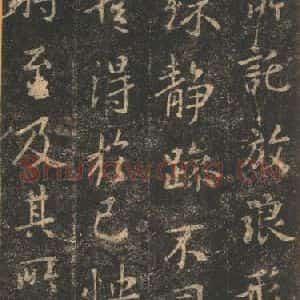 所託放浪形
殊静躁不同
暫得於己怏
將至及其所
Shufawang.CN